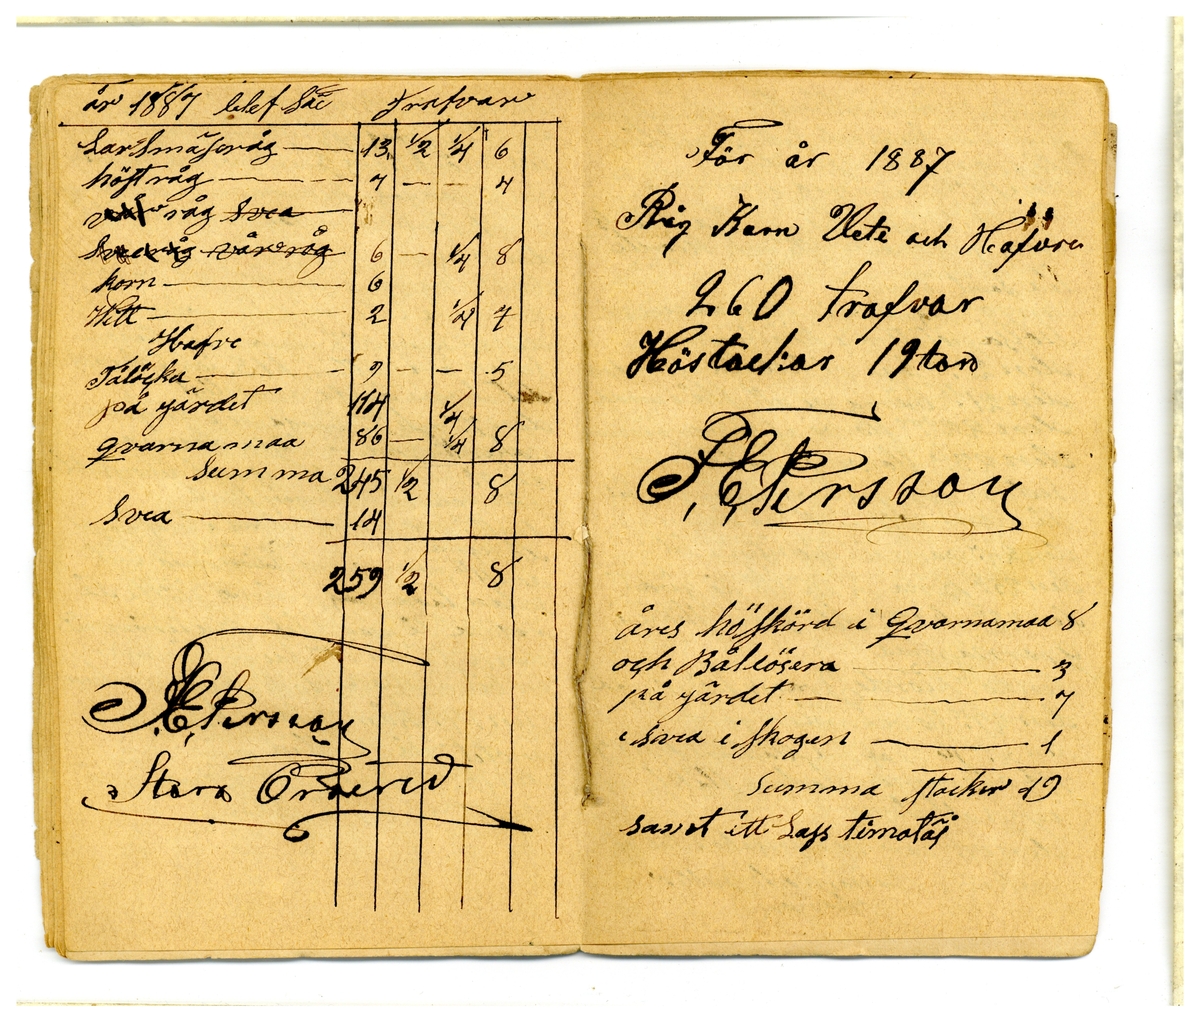 år 1887 blef Säe Trafvar
Larsmäsoråg 13 1/2 1/4 6
höstråg 7 — — 4
råg Svea
vårråg 6 — 1/4 8
korn 6
Vete 2 1/4 4
Hafre
9 — — 5
på gärdet 114 1/4
Qvarnamaa 86 — 1/4 8
Summa 245 1/2 8
Svea 14
259 1/2 8
P. E. Persson
Stora
För år 1887
Råg Korn Vete och Hafvre
260 trafvar
Höstackar 19 ton
P. E. Persson
åres höskörd i Qvarnamaa 8
och 3
på gärdet 7
i Svea i skogen 1
Summa stackar 19
samt ett Lass timotäj